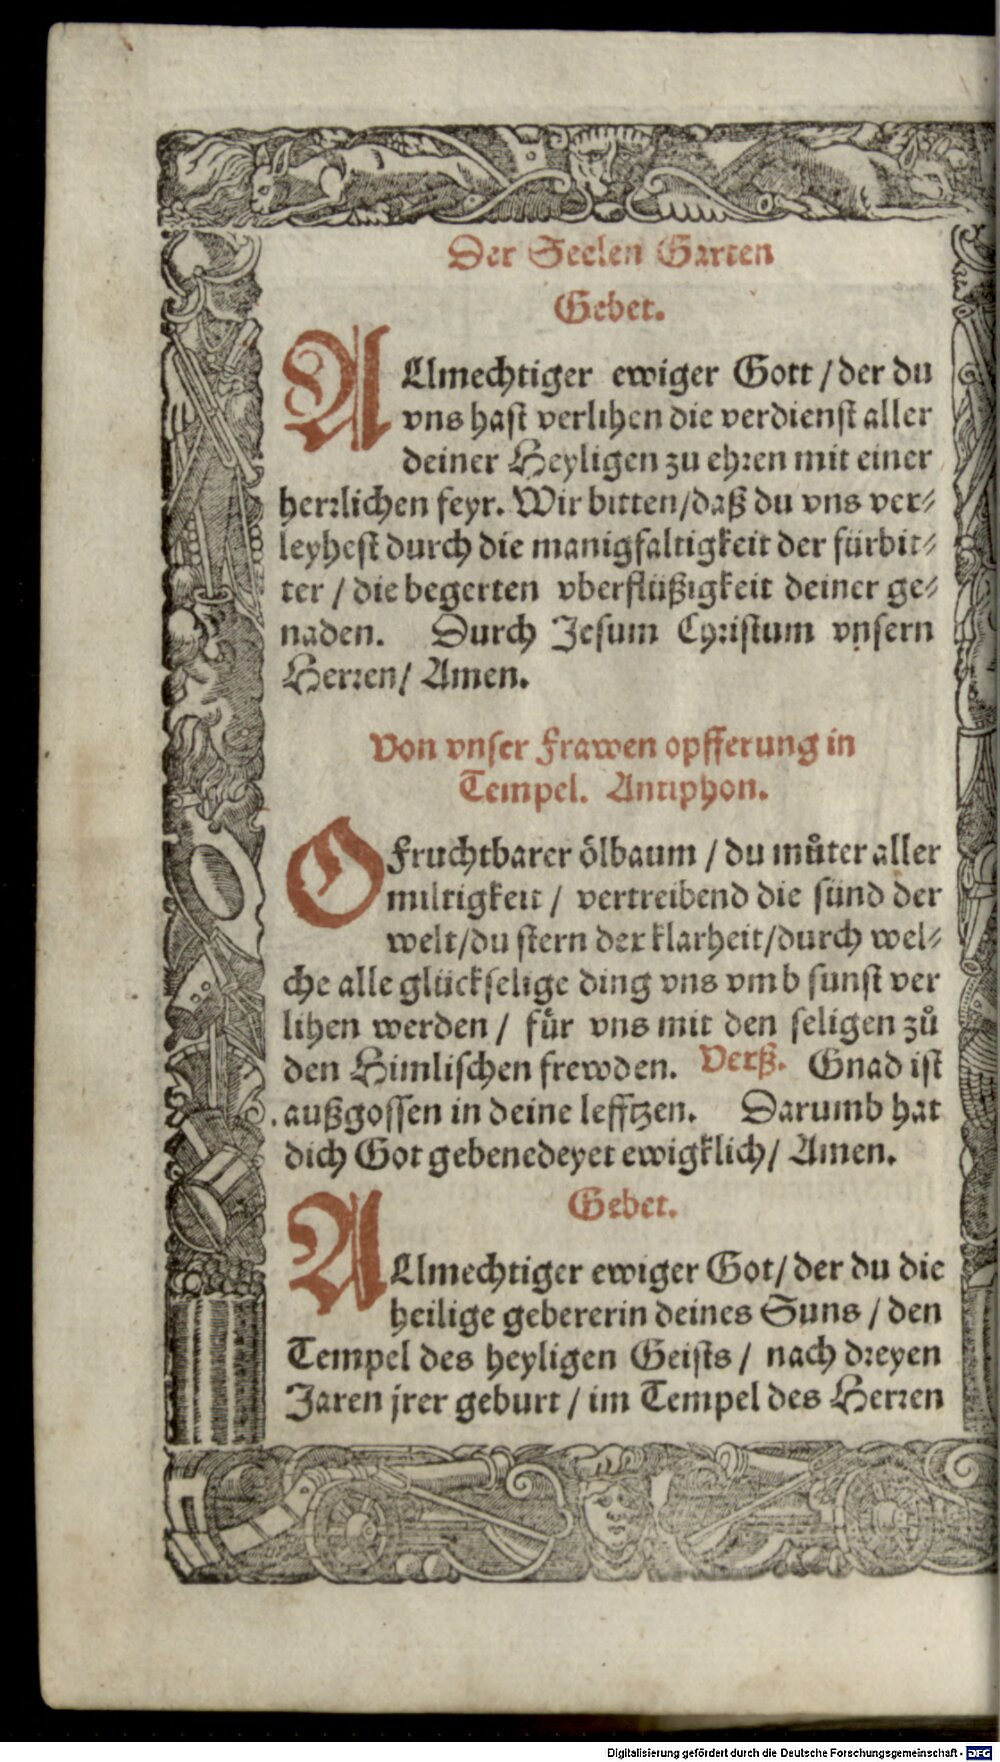 Der Seelen Garten
Gebet.
ALlmechtiger ewiger Gott / der du
vns hast verlihen die verdienst aller
deiner Heyligen zu ehren mit einer
herrlichen feyr. Wir bitten/daß du vns ver⸗
leyhest durch die manigfaltigkeit der fürbit⸗
ter / die begerten vberflüßigkeit deiner ge⸗
naden. Durch Jesum Christum vnsern
Herren/ Amen.
Von vnser Frawen opfferung in
Tempel. Antiphon.
O Fruchtbarer ölbaum / du můter aller
miltigkeit / vertreibend die sünd der
welt/du stern der klarheit/durch wel⸗
che alle glückselige ding vns vmb sunst ver
lihen werden / fůr vns mit den seligen zů
den Himlischen frewden. Verß. Gnad ist
außgossen in deine lefftzen. Darumb hat
dich Got gebenedeyet ewigklich/ Amen.
Gebet.
ALlmechtiger ewiger Got/ der du die
heilige gebererin deines Suns / den
Tempel des heyligen Geists / nach dreyen
Jaren jrer geburt / im Tempel des Herren
Digitalisierung gefördert durch die Deutsche Forschungsgemeinschaft - DFG